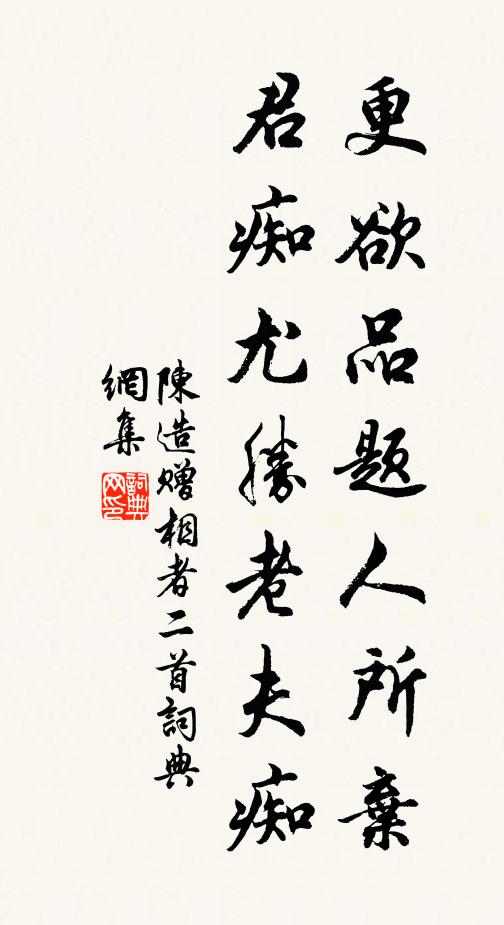 更欲品题人所棄
君痴尤勝老夫痴
陳造贈相者二首詞典
網集
詞典
网印